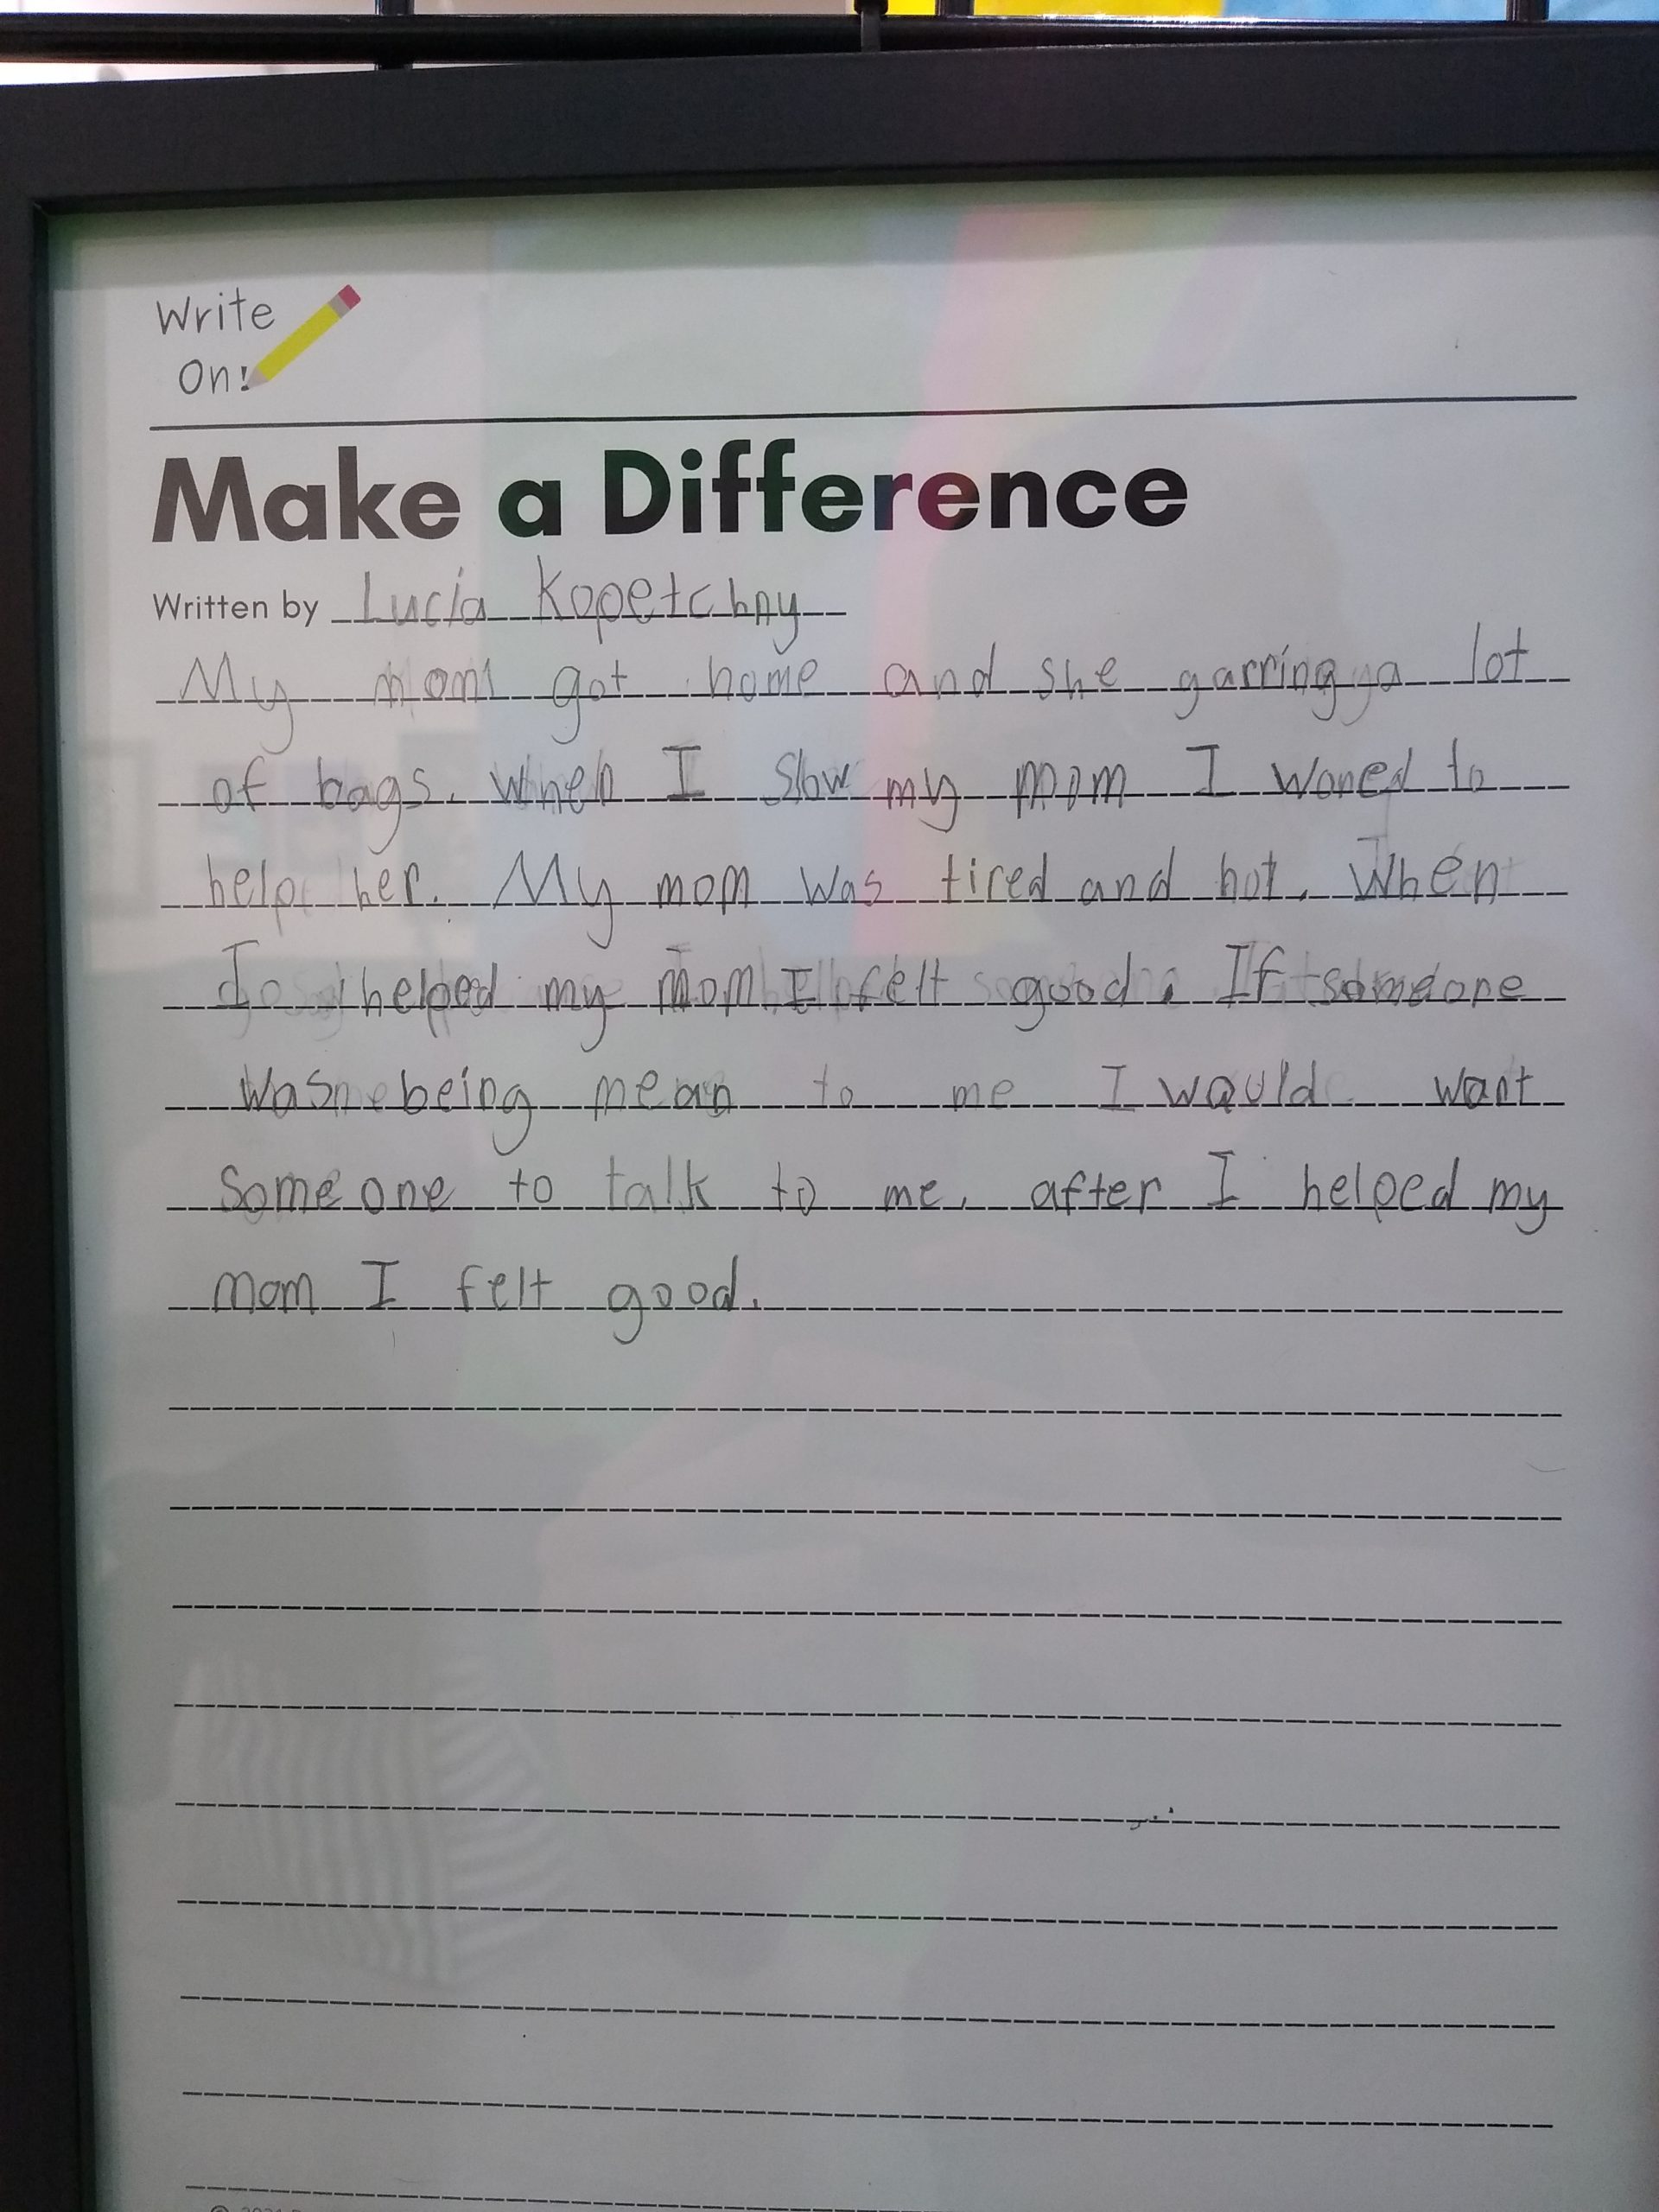 Write
On!
Make a Difference
Written by Lucia Kopetchny
My mom got home and she garring a lot
of bags. When I slow my mom I woned to
help her. My mom was tired and hot. When
I helped my mom I felt good. If someone
was being mean to me I would want
some one to talk to me. after I helped my
mom I felt good.